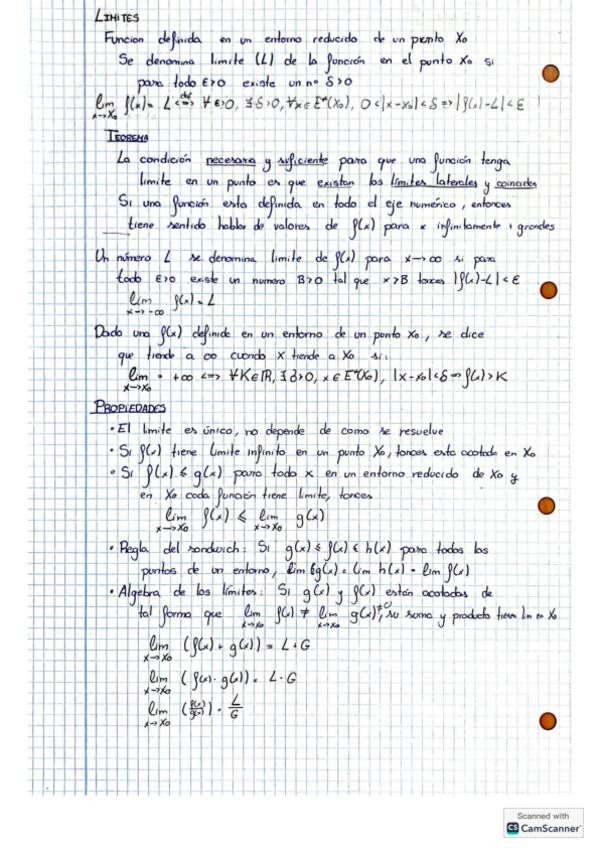 LIMITES
Funcion definida en un entorno reducido de un punto X₀
Se denomina limite (L) de la función en el punto X₀ si
para todo ε>0 existe un nº δ>0
lim f(x) = L <=> ∀ε>0, ∃δ>0, ∀x∈E*(X₀), 0<|x-x₀|<δ => |f(x)-L|<ε
x→X₀
TEOREMA
La condición necesaria y suficiente para que una función tenga
limite en un punto es que existan los límites laterales y coincidan
Si una función esta definida en todo el eje numérico, entonces
tiene sentido hablar de valores de f(x) para x infinitamente + grandes
Un número L se denomina limite de f(x) para x→∞ si para
todo ε>0 existe un numero B>0 tal que x>B tonces |f(x)-L|<ε
lim f(x) = L
x→-∞
Dado una f(x) definida en un entorno de un ponto X₀, se dice
que tiende a ∞ cuando x tiende a X₀ si:
lim = +∞ <=> ∀K∈ℝ, ∃δ>0, x∈E*(X₀), |x-x₀|<δ => f(x)>K
x→X₀
PROPIEDADES
• El limite es único, no depende de como se resuelve
• Si f(x) tiene limite infinito en un punto X₀, tonces esta acotada en X₀
• Si f(x) ≤ g(x) para todo x en un entorno reducido de X₀ y
en X₀ cada función tiene limite, tonces
lim f(x) ≤ lim g(x)
x→X₀ x→X₀
• Regla del sandwich: Si g(x) ≤ f(x) ≤ h(x) para todos los
puntos de un entorno, lim g(x) = lim h(x) = lim f(x)
• Algebra de los límites: Si g(x) y f(x) están acotadas de
tal forma que lim f(x) ≠ lim g(x)≠0, su suma y producto tienen lim en X₀
x→X₀ x→X₀
lim (f(x) + g(x)) = L+G
x→X₀
lim (f(x) · g(x)) = L·G
x→X₀
lim (f(x)/g(x)) = L/G
x→X₀
Scanned with
CS CamScanner